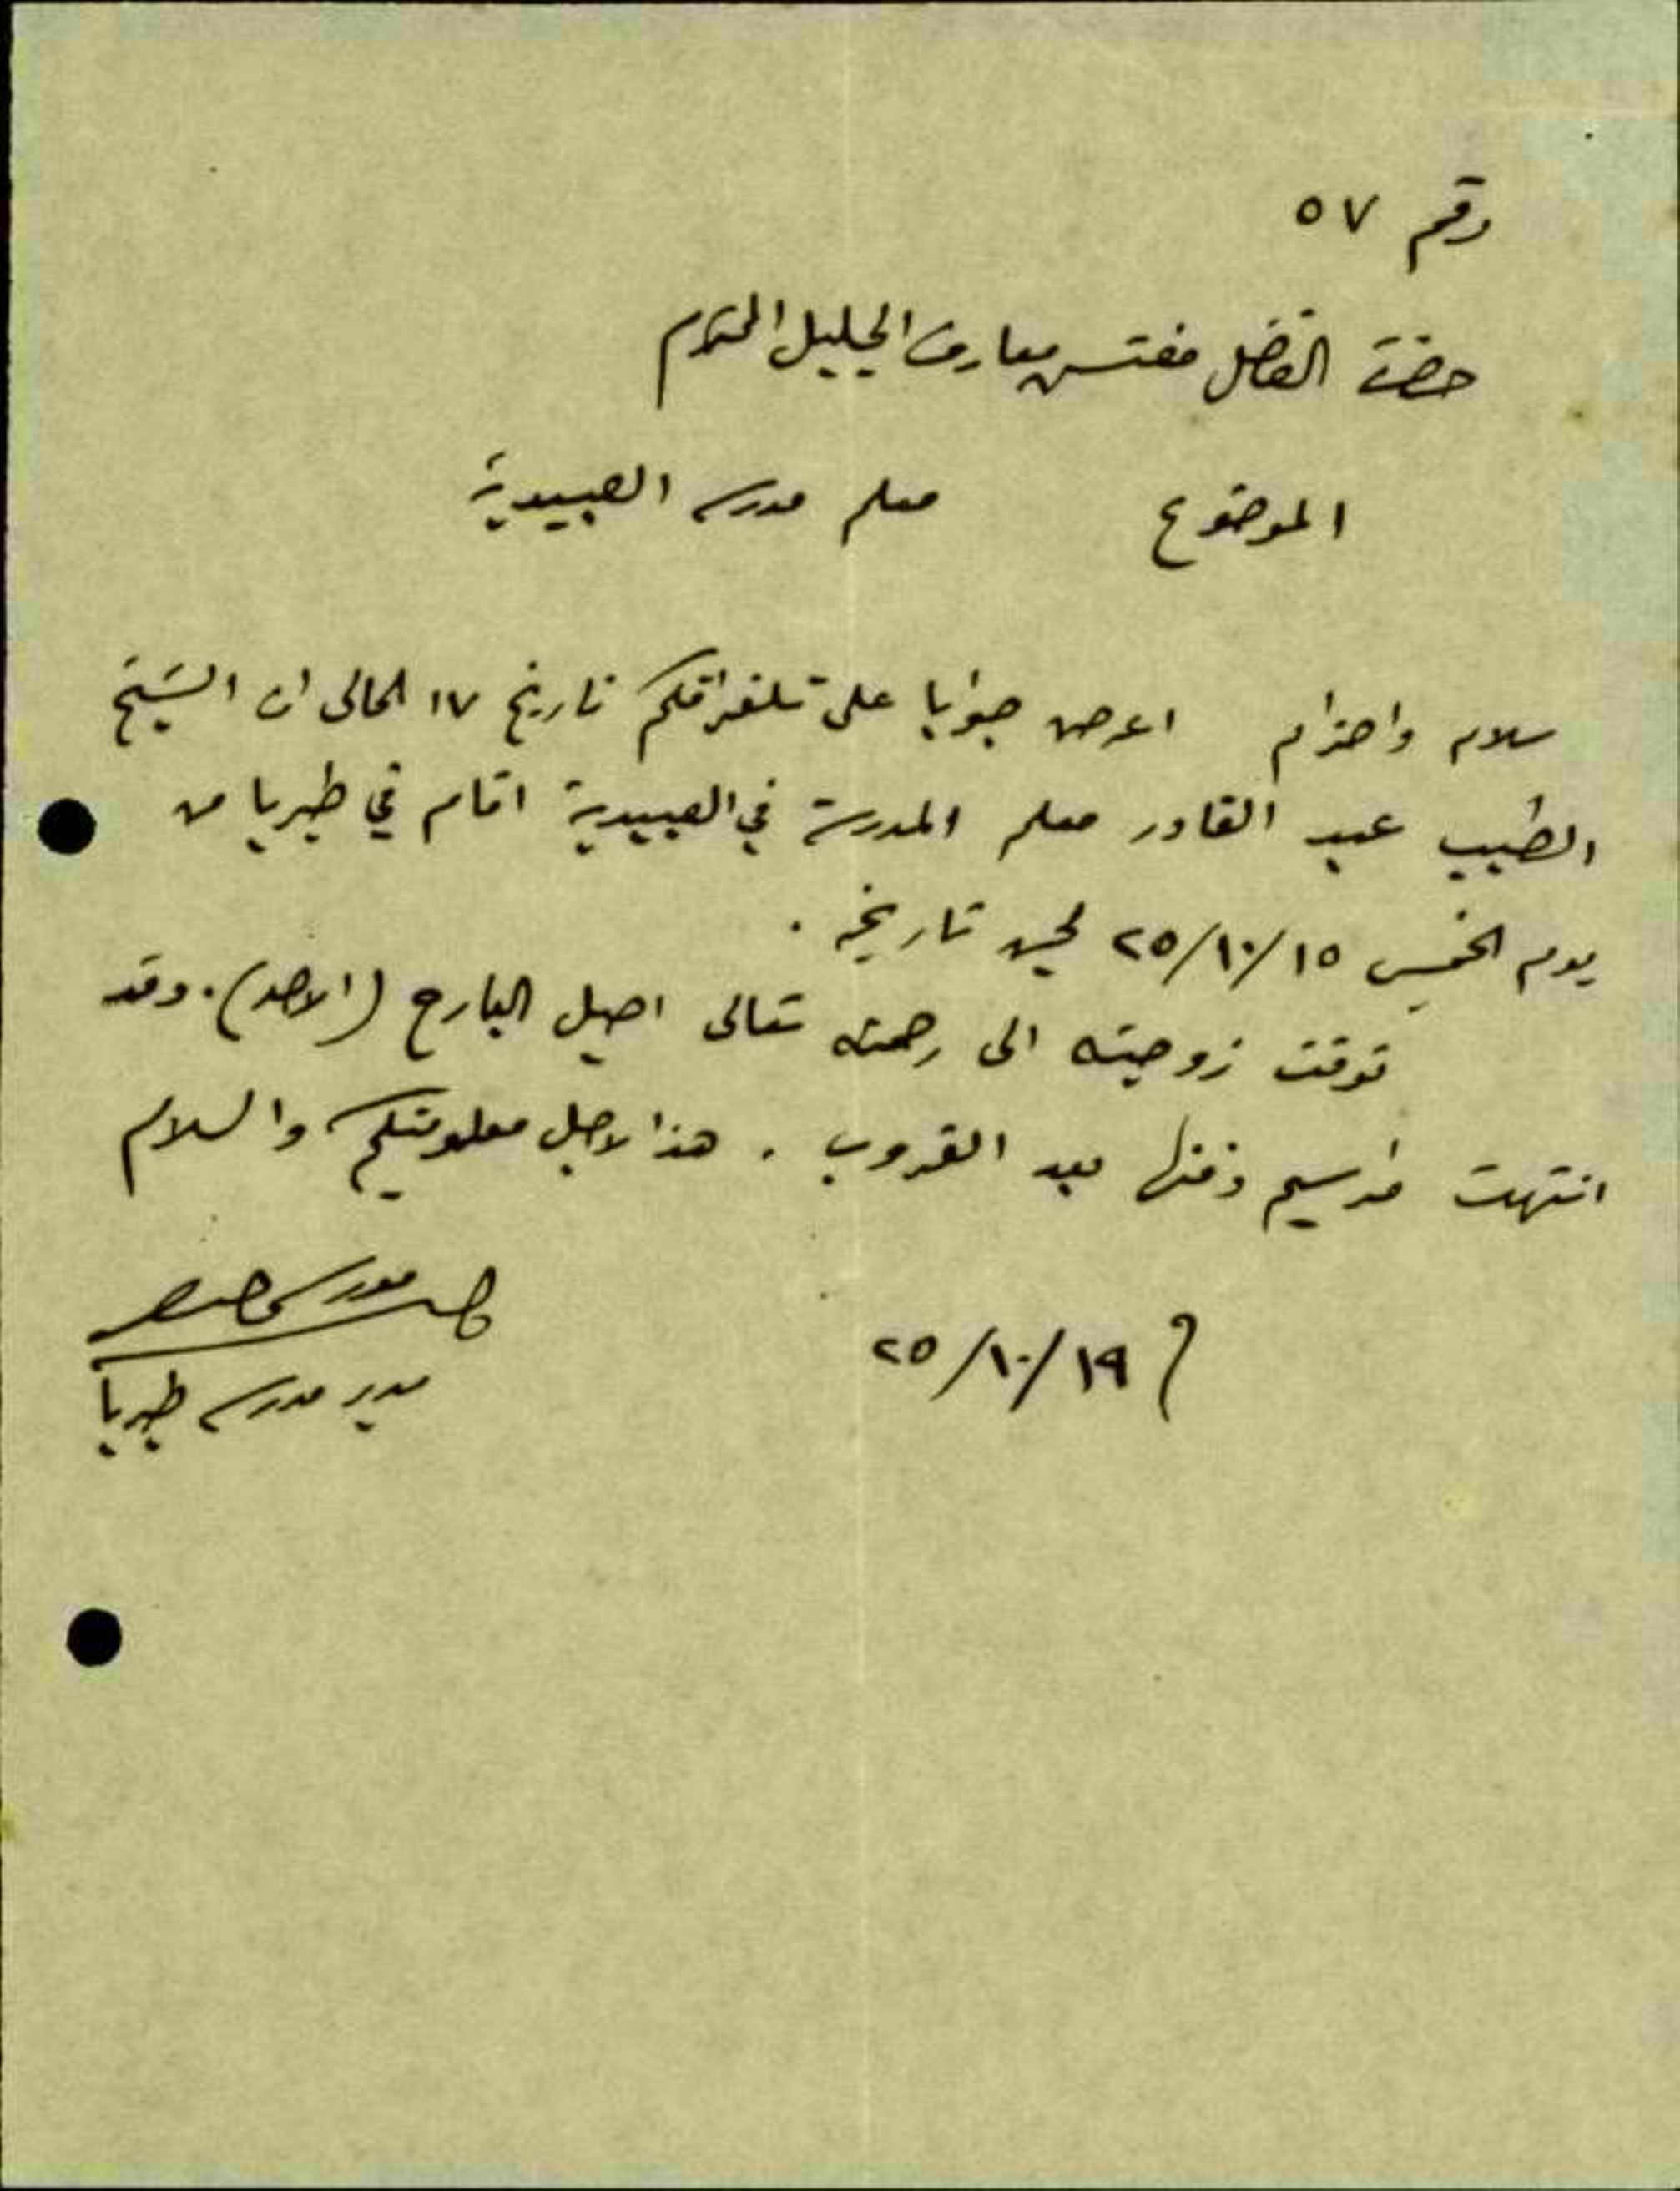 رقم ٥٧
حضرة الفاضل مفتش معارف الجليل المحترم
الموضوع معلم مدرسة العبيدية
سلام واحترام اعرض جوابا على تلغرافكم تاريخ ١٧ الحالى ان الشيخ
الطيب عبد القادر معلم المدرسة في العبيدية اقام في طبريا من
يوم الخميس ٢٥/١٠/١٥ لحين تاريخه .
توفت زوجته الى رحمته تعالى اصيل البارح (الاحد). وقد
انتهت مراسيم دفنها بعد الغروب . هذا لاجل معلوميتكم والسلام
٢٥/١٠/١٩
مدير مدرسة طبريا